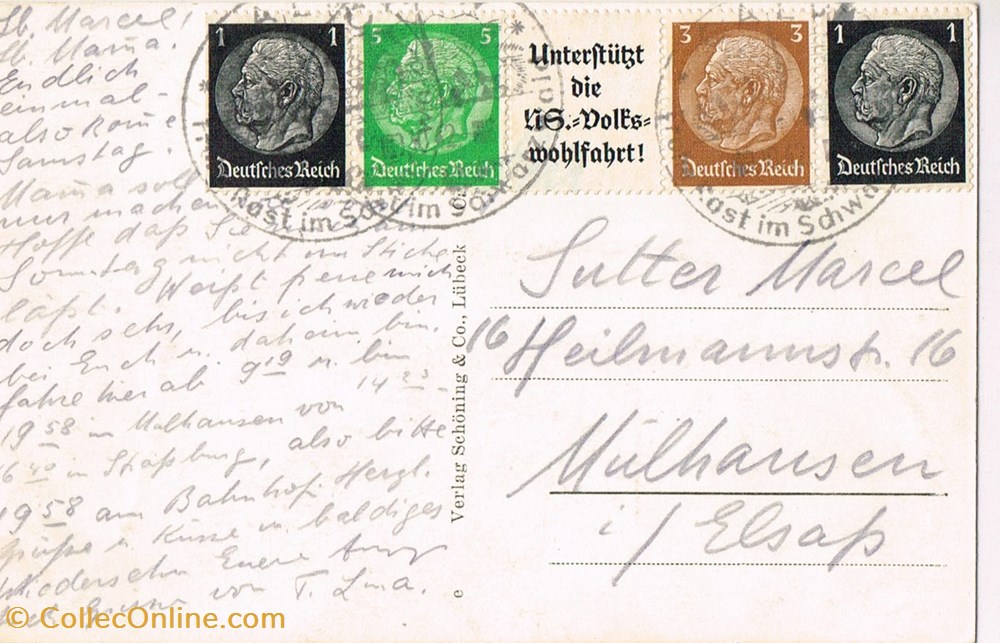 Lb. Marcel!
Lb. Mama!
Endlich
einmal -
also kome
Samstag.
Mama soll
nur machen
Hoffe daß Sie
Sonntag nicht im Stiche
läßt. Weißt freue mich
doch sehr, bis ich wieder
bei Euch u. daheim bin.
fahre hier ab 9 19 u. bin
14 23
19 58 in Mülhausen von
16 40 in Straßburg, also bitte
19 58 am Bahnhof. Herzl.
Grüße u Küsse u baldiges
Wiedersehn Euere
von T. Lina.
1 1
5 5
Unterstützt
die
NS.-Volks=
wohlfahrt!
3 3
1 1
Deutsches Reich
Deutsches Reich
Deutsches Reich
Deutsches Reich
Rast im Schw
Verlag Schöning & Co., Lübeck
e
Sutter Marcel
16 Heilmannstr. 16
Mülhausen
i/ Elsaß
© CollecOnline.com